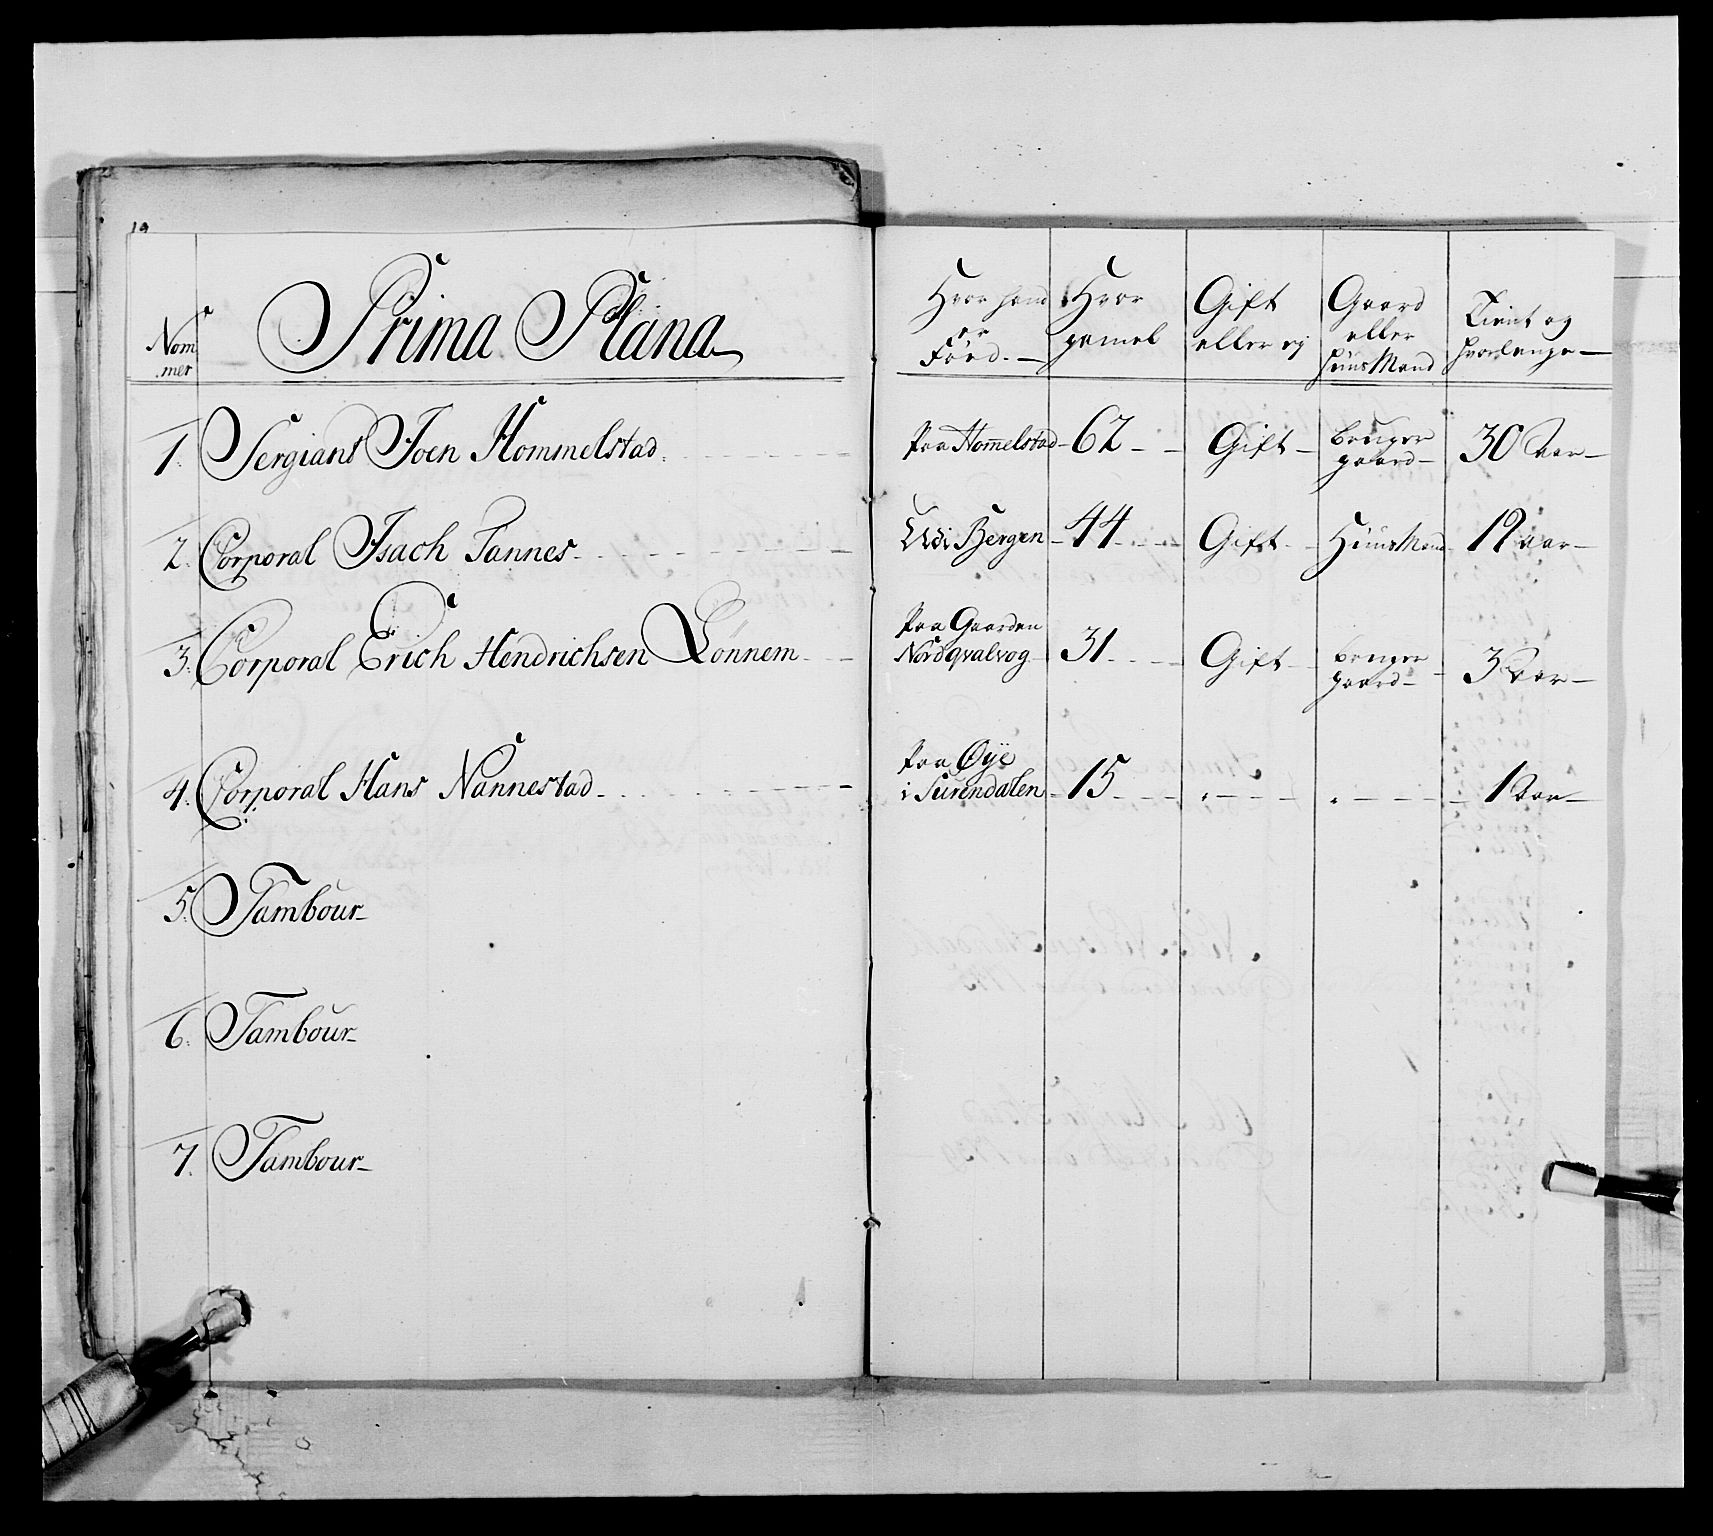 Nom
mer
Prima Plana
Hvor hand
er
Föed.
Hvor
gamel
Gift
eller ej
Gaard
eller
huus Mand
Tient og
hvorlænge
1. Sergiant Joen Hommelstad. Paa Hommelstad 62 Gift bruger
gaard 30 Aar
2. Corporal Isach Tannes Udi Bergen 44 Gift Huus Mand 19 aar
3. Corporal Erich Hendrichsen Lönnem Paa Gaarden
Nordqvalvog 31 Gift bruger
gaard 3 Aar
4. Corporal Hans Nannestad Paa Øye
i Surendalen 15 1 Aar
5. Tambour
6. Tambour
7. Tambour